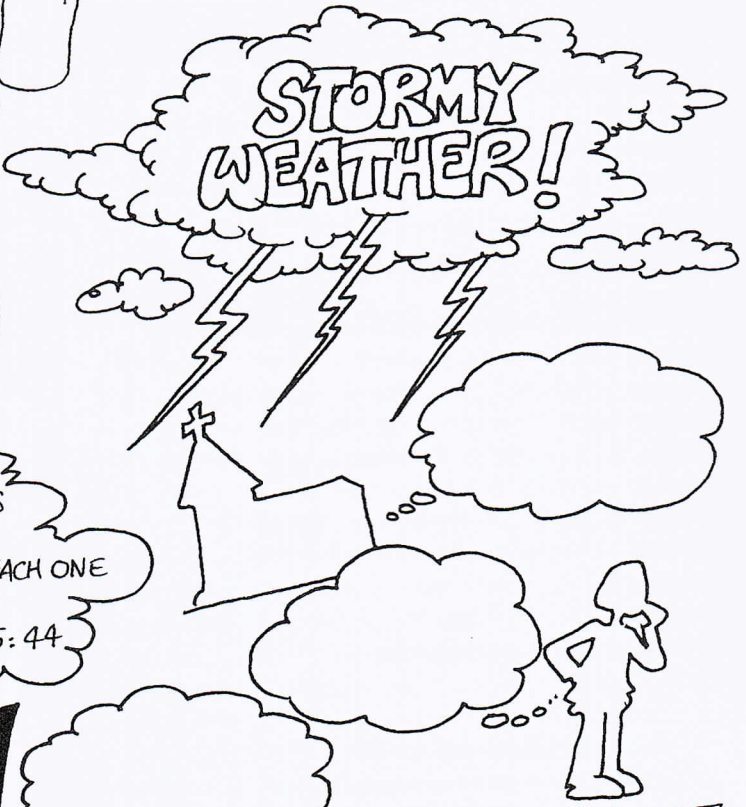 STORMY
WEATHER!
S
ACH ONE
5:44